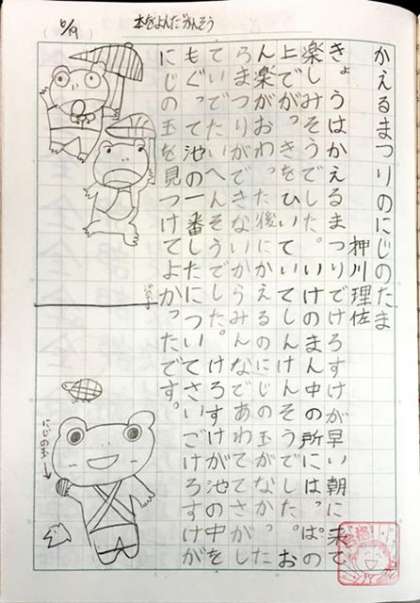 本をよんだかんそう
かえるまつりのにじのたま
押川理佐
きょうはかえるまつりでけろすけが早い朝に来て
楽しみそうでした。いけのまん中の所にはっぱの
上でがっきをひいていてしんけんそうでした。お
ん楽がおわった後にかえるのにじの玉がなかった
らまつりができないからみんなであわててさがし
ていてたいへんそうでした。けろすけが池の中を
もぐって池の一番したについてさいごけろすけが
にじの玉を見つけてよかったです。
にじの玉